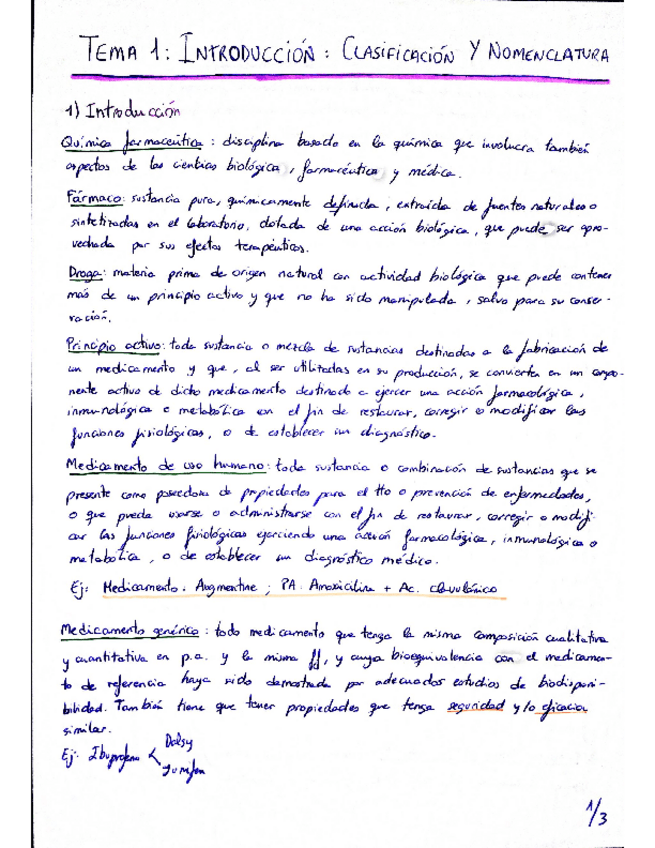 TEMA 1: INTRODUCCIÓN: CLASIFICACIÓN Y NOMENCLATURA
1) Introducción
Química farmacéutica: disciplina basada en la química que involucra también
aspectos de las ciencias biológica, farmacéutica y médica.
Fármaco: sustancia pura, químicamente definida, extraída de fuentes naturales o
sintetizadas en el laboratorio, dotada de una acción biológica, que puede ser apro-
vechada por sus efectos terapéuticos.
Droga: materia prima de origen natural con actividad biológica que puede contener
más de un principio activo y que no ha sido manipulada, salvo para su conser-
vación.
Principio activo: toda sustancia o mezcla de sustancias destinadas a la fabricación de
un medicamento y que, al ser utilizadas en su producción, se convierten en un compo-
nente activo de dicho medicamento destinado a ejercer una acción farmacológica,
inmunológica o metabólica con el fin de restaurar, corregir o modificar las
funciones fisiológicas, o de establecer un diagnóstico.
Medicamento de uso humano: toda sustancia o combinación de sustancias que se
presente como poseedora de propiedades para el tto o prevención de enfermedades,
o que pueda usarse o administrarse con el fin de restaurar, corregir o modifi-
car las funciones fisiológicas ejerciendo una acción farmacológica, inmunológica o
metabólica, o de establecer un diagnóstico médico.
Ej: Medicamento: Augmentine; PA: Amoxicilina + Ac. clavulánico
Medicamento genérico: todo medicamento que tenga la misma composición cualitativa
y cuantitativa en p.a. y la misma ff, y cuya bioequivalencia con el medicamen-
to de referencia haya sido demostrada por adecuados estudios de biodisponi-
bilidad. También tiene que tener propiedades que tenga seguridad y/o eficacia
similar.
Ej: Ibuprofeno < Dalsy
Junifen
1/3